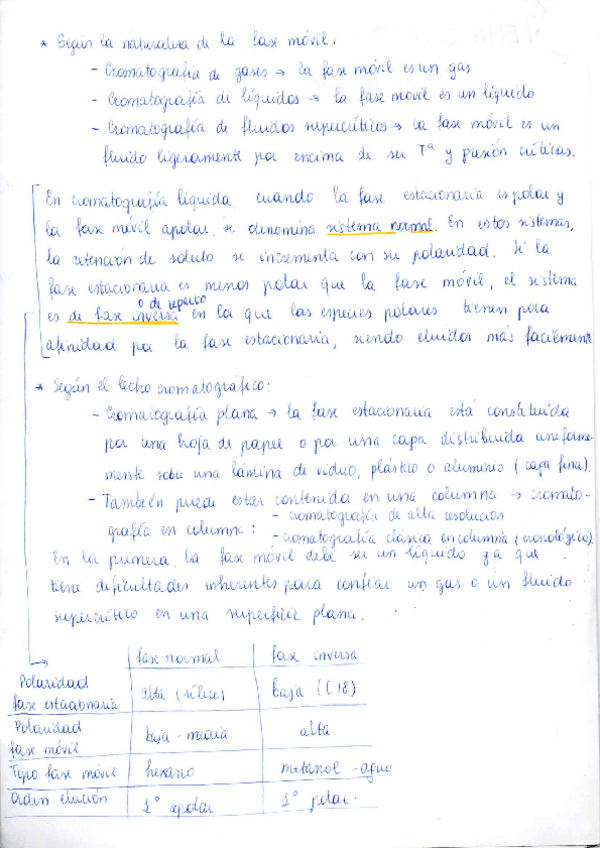 * Según la naturaleza de la fase móvil:
- Cromatografía de gases → la fase móvil es un gas
- Cromatografía de líquidos → la fase movil es un líquido
- Cromatografía de fluidos supercríticos → la fase móvil es un
fluido ligeramente por encima de su Tª y presión críticas.
En cromatografía líquida, cuando la fase estacionaria es polar y
la fase móvil apolar, se denomina sistema normal. En estos sistemas,
la retención de soluto se incrementa con su polaridad. Si la
fase estacionaria es menos polar que la fase móvil, el sistema
o de reparto
es de fase inversa en la que las especies polares tienen poca
afinidad por la fase estacionaria, siendo eluidos más facilmente
* Según el lecho cromatográfico:
- Cromatografía plana → la fase estacionaria está constituida
por una hoja de papel o por una capa distribuida uniforme-
mente sobre una lámina de vidrio, plástico o aluminio (capa fina).
- También puede estar contenida en una columna → cromato-
grafía en columna: - cromatografía de alta resolución
- cromatografía clásica en columna (cronológico).
En la primera, la fase móvil debe ser un líquido ya que
tiene dificultades inherentes para confinar un gas o un fluido
supercrítico en una superficie plana.
fase normal fase inversa
Polaridad
fase estacionaria alta (sílice) baja (C18)
Polaridad
fase móvil baja - media alta
Tipo fase móvil hexano metanol - agua
Orden elución 1º apolar 1º polar.